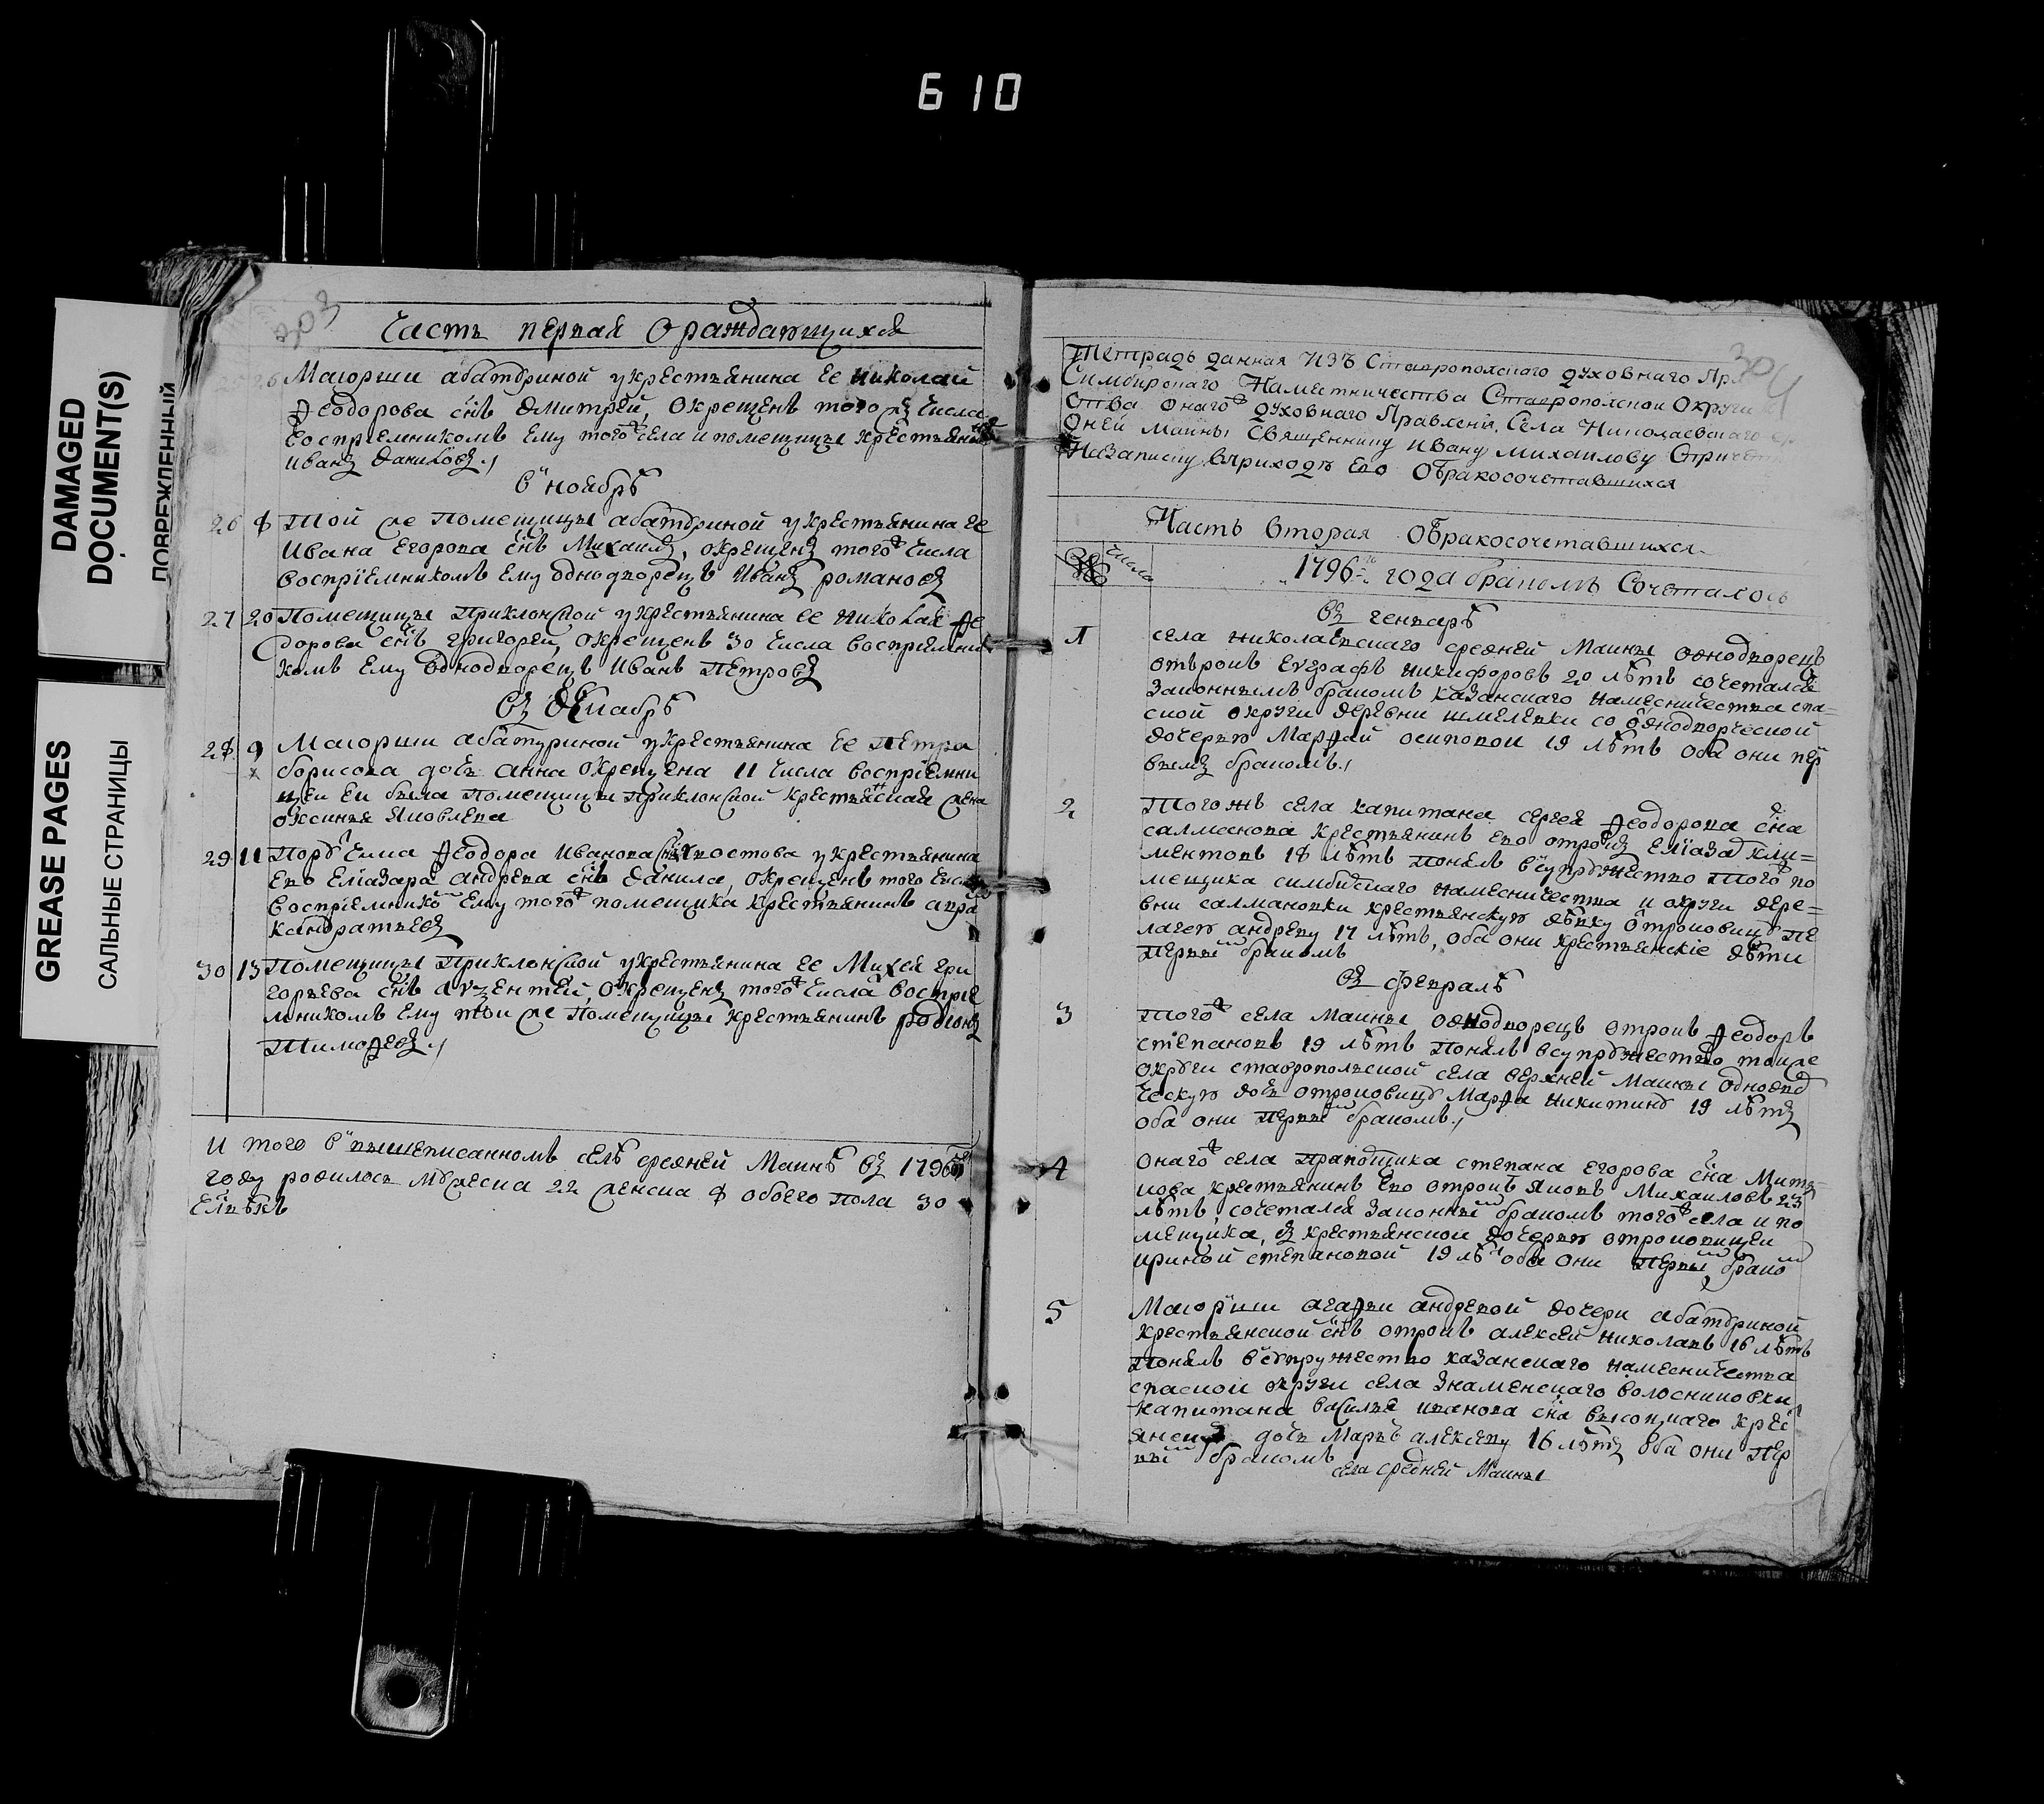 610
DAMAGED
DOCUMENT(S)
ПОВРЕЖДЕННЫЙ
GREASE PAGES
САЛЬНЫЕ СТРАНИЦЫ
303
Часть первая О раждающихся
26 Маіорши абатуриной у крестьянина ее николай
Ѳеодорова снъ дмитрей, окрещенъ того числа
воспріемникомъ ему тогож села и помещицы крестьянин
иванъ данилов
в ноябрѣ
26 8 Той же помещицы абатуриной у крестьянина ее
ивана егорова снъ Михаилъ, окрещенъ тогож числа
воспріемникомъ ему однодворецъ иванъ романовъ
27 20 Помещицы приклонской у крестьянина ее николая Ѳе
дорова снъ григорей, окрещенъ 30 числа воспріемни
комъ ему однодворецъ иванъ петровъ
въ декабрѣ
28 9 Маіорши абатуриной у крестьянина ее петра
борисова дочь анна окрещена 11 числа воспріемни
цей ей была помещицы приклонской крестьянская жена
оксинья яковлева
29 11 Поручика Ѳеодора иванова сна у крестьянина
ево еліазара андрева снъ данила, окрещенъ того числа
воспріемнико ему тогож помещика крестьянинъ
кандратьевъ
30 13 Помещицы приклонской у крестьянина ее Михея гри
горьева снъ авѯентей, окрещенъ тогож числа воспріе
мникомъ ему той же помещицы крестьянинъ родіонъ
Тимоѳеевъ
И того в вышеписанномъ селѣ средней Маинѣ въ 1796м
году родилось мужеска 22 женска 8 обоего пола 30
члвкъ
304
Тетрадь данная изъ Ставропольского духовнаго Пра
Симбирскаго Наместничества Ставропольской Округи
ства онагож духовнаго Правленія, Села Николаевскаго
дней маины Священнику ивану михаилову Спричет
На записку вприходѣ ево Обракосочетавшихся
Часть вторая Обракосочетавшихся
числа
1796 года бракомъ Сочеталось
въ генварѣ
1 села николаевскаго средней Маины однодворецъ
отрокъ евграфъ никифоровъ 20 лѣтъ сочетался
законнымъ бракомъ казанскаго намесничества спа=
ской округи деревни шмелевки со однодворческой
дочерью Марѳой осиповой 19 лѣтъ оба они пер
вымъ бракомъ
2 Того жъ села капитана сергея Ѳеодорова сна
салманова крестьянинъ ево отрокъ еліаза кли=
ментовъ 18 лѣтъ понялъ в супружество тогож по
мещика симбирскаго намесничества и округи дере=
вни салмановки крестьянскую дѣвку отроковицу пе
лагею андреву 17 лѣтъ, оба они крестьянскіе дѣти
первы бракомъ
въ февралѣ
3 Тогож села Маины однодворецъ отрокъ Ѳеодоръ
степановъ 19 лѣтъ понялъ всупружество тойже
округи ставропольской села верхней Маины однодвор
ческую дочь отроковицу Марѳа никитину 19 лѣтъ
оба они первы бракомъ
4 Онагож села прапощика степана егорова сна
крестьянинъ ево отрокъ яковъ Михаиловъ 23
лѣтъ, сочетался законны бракомъ тогож села и по
мещика, съ крестьянской дочерью отроковицей
ириной степановой 19 лѣ оба они первы брако
5 Маіорши агаѳьи андревой дочери абатуриной
крестьянской снъ отрокъ алексей николавъ 16 лѣтъ
понялъ всупружество казанскаго намесничества
спаской округи села знаменскаго
капитана василья иванова сна крес
янск дочь Марью алексеву 16 лѣтъ оба они пер
вы бракомъ
села средней Маины